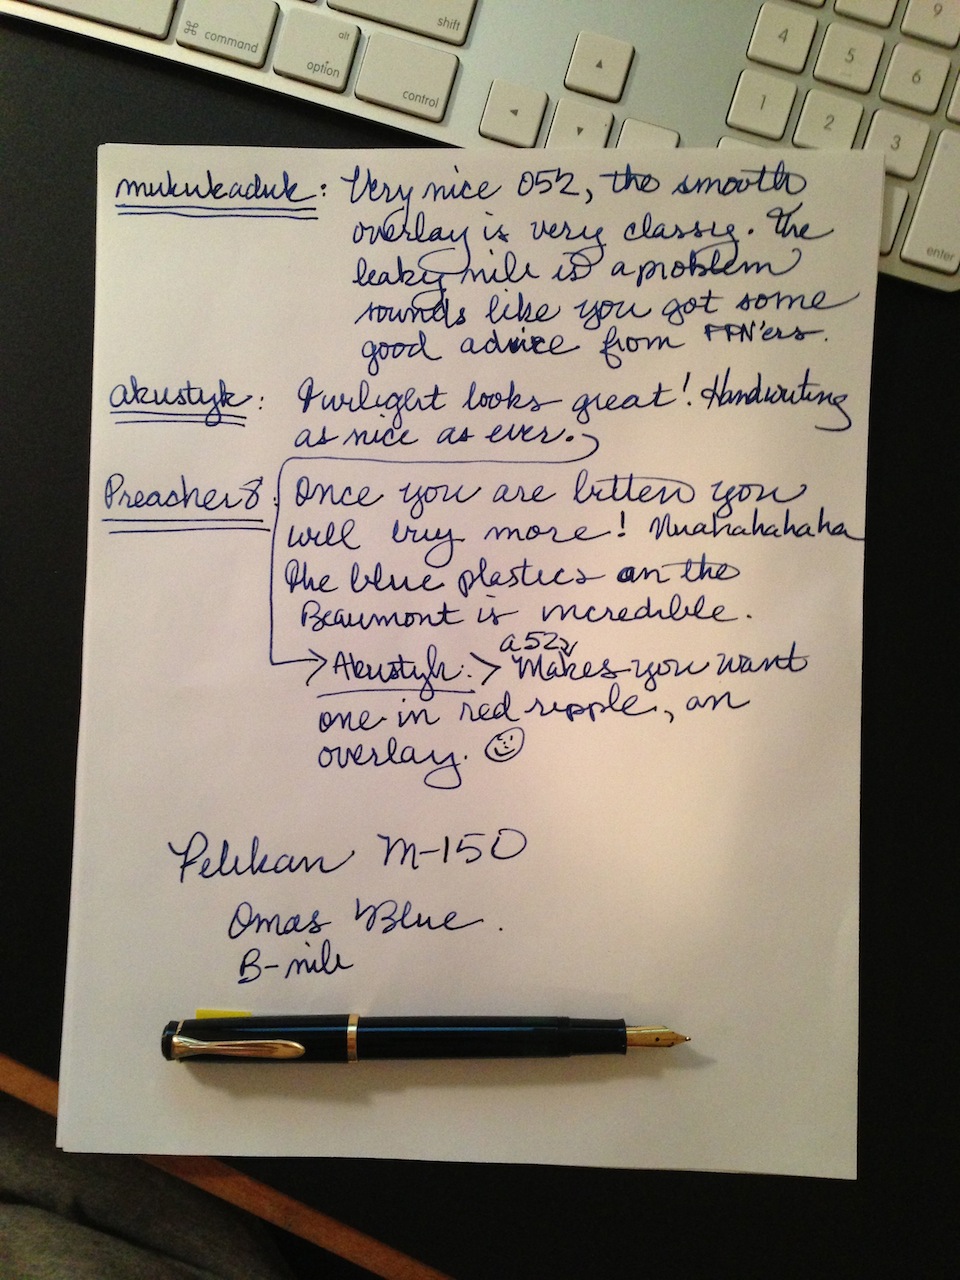 ⌘ command
alt
option
control
shift
4
5
6
9
1
2
3
enter
mukukaduk: Very nice 052, the smooth
overlay is very classy. The
leaky nib is a problem
sounds like you got some
good advice from FPN'ers.
akustyk: Twilight looks great! Handwriting
as nice as ever.
Preacher8: Once you are bitten you
will buy more! Muahahahaha
The blue plastics on the
Beaumont is incredible.
a 52
> Akustyk: > Makes you want
one in red ripple, an
overlay. ☺
Pelikan M-150
Omas Blue.
B-nib